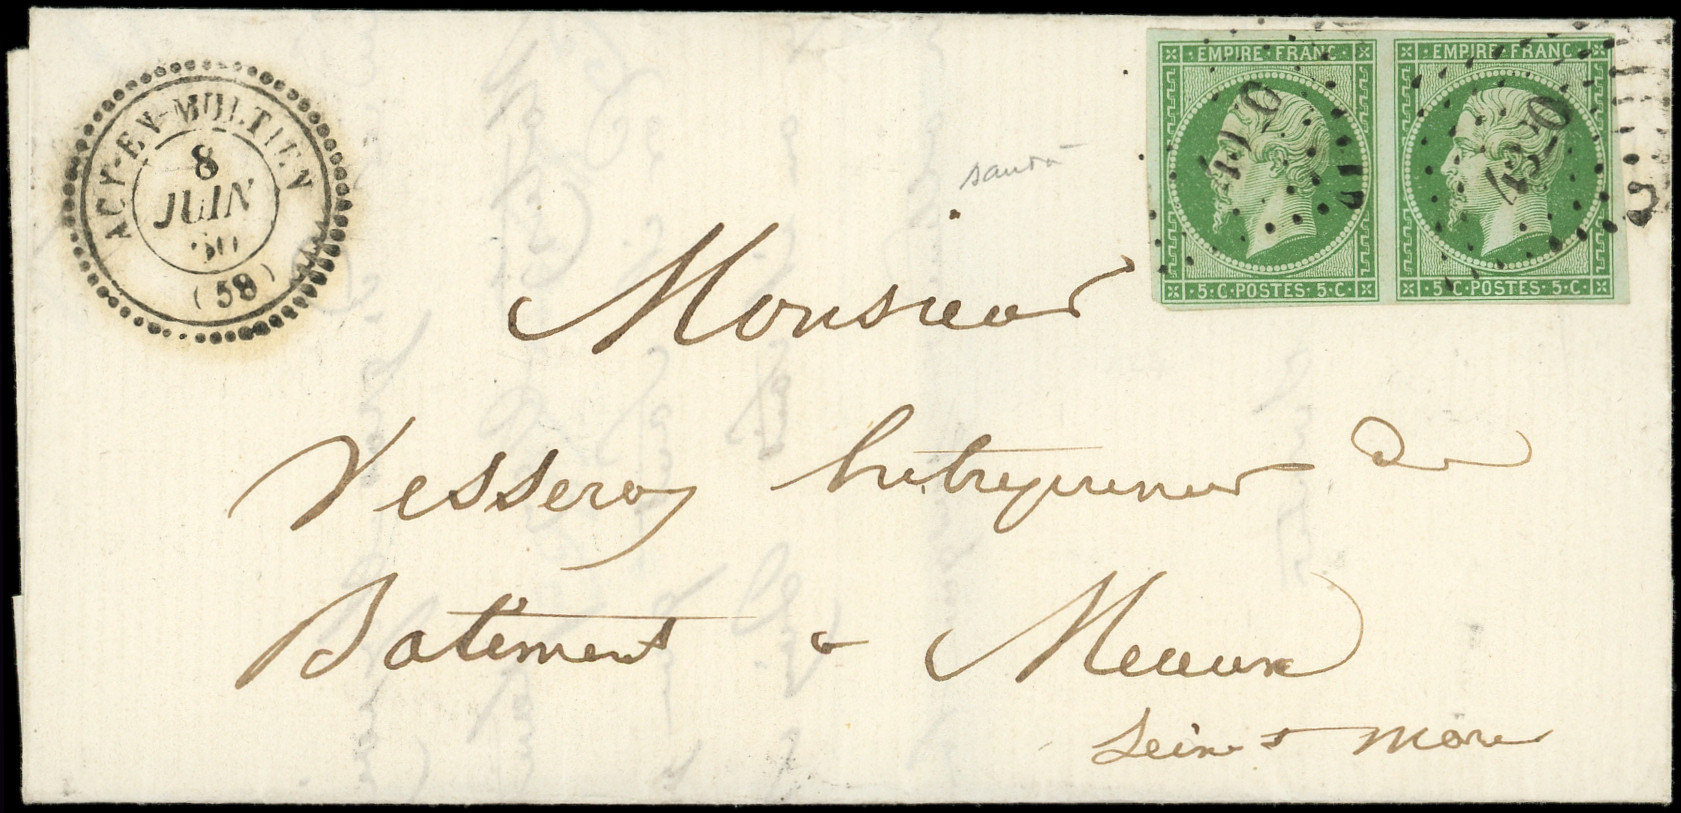 ACY-EN-MULTIEN
8
JUIN
60
(58)
EMPIRE FRANC
5·C·POSTES·5·C·
EMPIRE FRANC
5·C·POSTES·5·C·
4320
Monsieur
Vesseroy Entrepreneur de
Batiment a Meaux
Seine & Marne